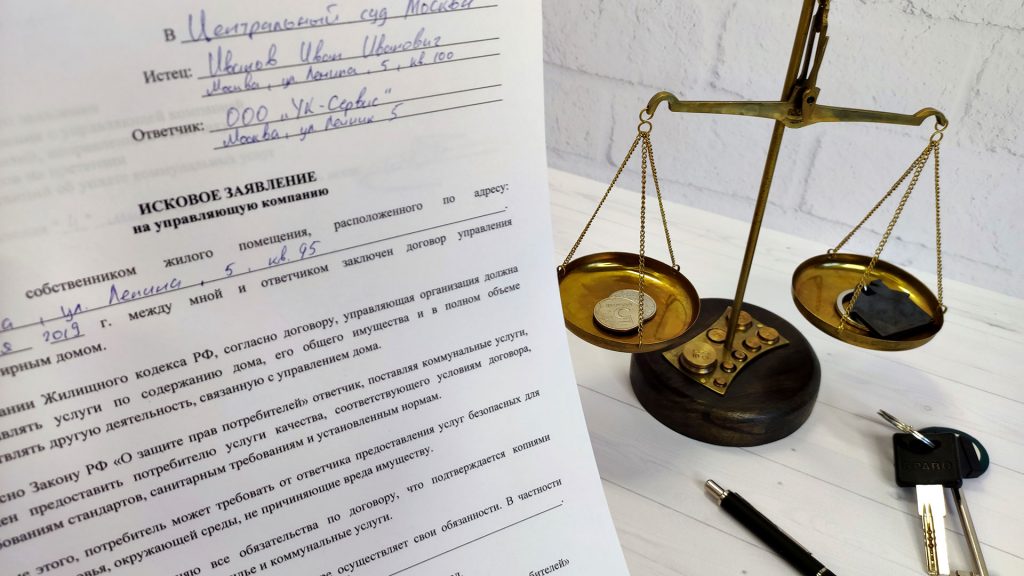 В Центральный суд Москвы
Истец: Иванов Иван Иванович
Москва, ул Ленина, 5, кв 100
Ответчик: ООО "УК-Сервис"
Москва, ул Ленин 5
ИСКОВОЕ ЗАЯВЛЕНИЕ
на управляющую компанию
собственником жилого помещения, расположенного по адресу:
а, ул. Ленина, 5, кв. 95.
я 2019 г. между мной и ответчиком заключен договор управления
ирным домом.
ании Жилищного кодекса РФ, согласно договору, управляющая организация должна
влять услуги по содержанию дома, его общего имущества и в полном объеме
твлять другую деятельность, связанную с управлением дома.
сно Закону РФ «О защите прав потребителей» ответчик, поставляя коммунальные услуги,
ен предоставить потребителю услуги качества, соответствующего условиям договора,
бованиям стандартов, санитарным требованиям и установленным нормам.
е этого, потребитель может требовать от ответчика предоставления услуг безопасных для
овья, окружающей среды, не причиняющие вреда имуществу.
няю все обязательства по договору, что подтверждается копиями
илье и коммунальные услуги.
не осуществляет свои обязанности. В частности
ебителей»